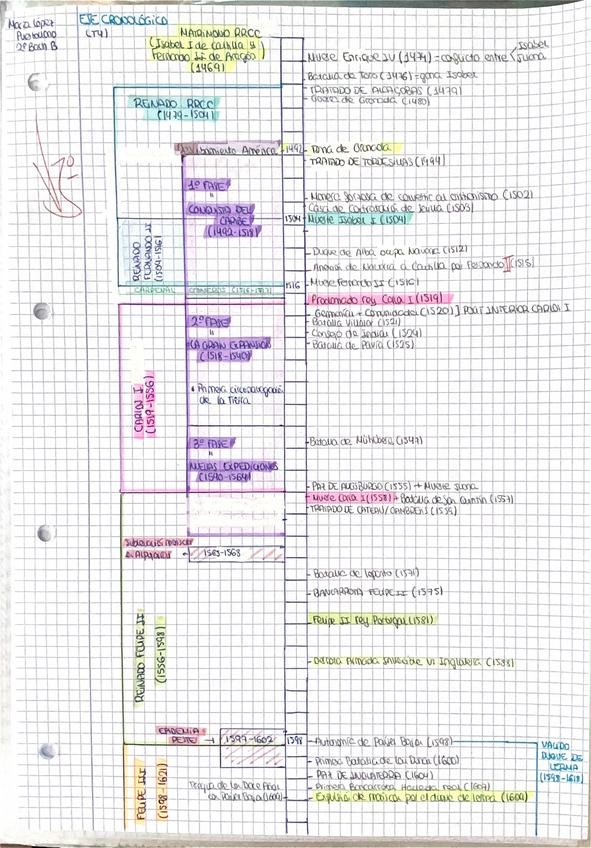 EJE CRONOLÓGICO
(T4)
María López
2º Bach B
MATRIMONIO RRCC
(Isabel I de Castilla y
Fernando II de Aragón)
(1469)
Muere Enrique IV (1474) = conflicto entre
Isabel
Juana
Batalla de Toro (1476) = gana Isabel
TRATADO DE ALCAÇOBAS (1479)
Guerra de Granada (1480)
REINADO RRCC
(1479-1504)
1º
América
1492
Toma de Granada
TRATADO DE TORDESILLAS (1494)
1º FASE
CONQUISTA DEL
CARIBE
(1492-1518)
Manera forzosa de convertir al cristianismo (1502)
Casa de Contratación de Sevilla (1503)
1504
Muere Isabel I (1504)
REINADO
FERNANDO II
(1504-1516)
Duque de Alba ocupa Navarra (1512)
Anexión de Navarra a Castilla por Fernando II (1515)
Muere Fernando II (1516)
1516
CARDENAL CISNEROS (1516-1517)
Proclamado rey Carlos I (1519)
Germanías + Comunidades (1520) ] POLIT INTERIOR CARLOS I
Batalla Villalar (1521)
Consejo de Indias (1524)
Batalla de Pavía (1525)
2º FASE
"
LA GRAN EXPANSIÓN
(1518-1540)
• Primera circunnavegación
de la Tierra
CARLOS I
(1519-1556)
3º FASE
"
NUEVAS EXPEDICIONES
(1540-1564)
Batalla de Mühlberg (1547)
PAZ DE AUGSBURGO (1555) + Muere Juana
Muere Carlos I (1558) + Batalla de San Quintín (1557)
TRATADO DE CATEAU/CAMBRÉSIS (1559)
1563-1568
Batalla de Lepanto (1571)
BANCARROTA FELIPE II (1575)
Felipe II rey Portugal (1581)
Derrota Armada Invencible vs Inglaterra (1588)
REINADO FELIPE II
(1556-1598)
EPIDEMIA
PESTE →
1597-1602
1598
Autonomía de Países Bajos (1598)
Primera Batalla de las Dunas (1600)
PAZ DE INGLATERRA (1604)
Primera Bancarrota Hacienda real (1607)
Expulsión de moriscos por el duque de Lerma (1609)
Tregua de los Doce Años
en Países Bajos (1609)
FELIPE III
(1598-1621)
VALIDO
DUQUE DE
LERMA
(1598-1618)